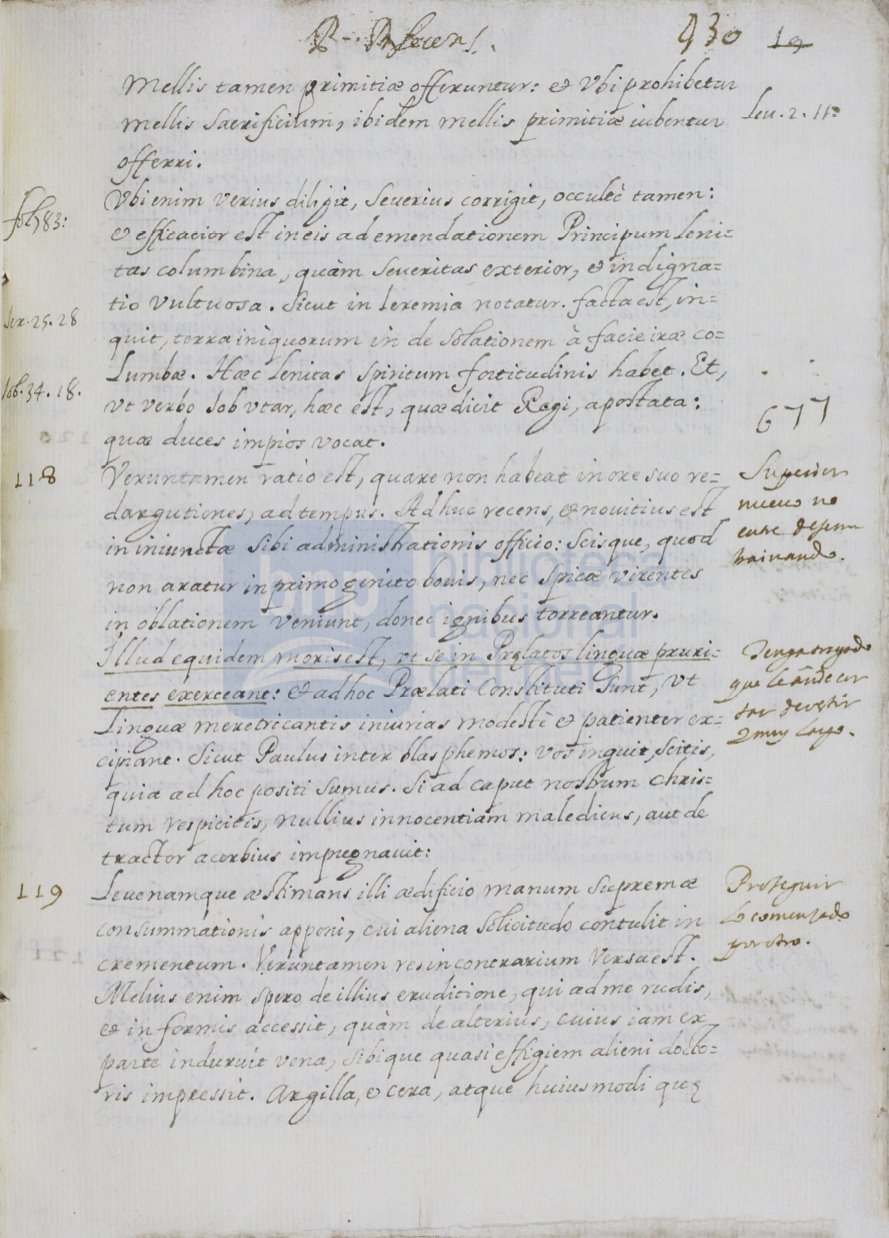 P. Blesens. 430 19
Mellis tamen primitiæ offeruntur: & Vbi prohibetur
mellis sacrificium, ibidem mellis primitiæ iubentur Leu. 2. 11.
offerri.
Vbi enim verius diligit, severius corrigit, occultè tamen:
fol 83:
& efficacior est in eis ad emendationem Principum leni=
tas columbina, quàm severitas exterior, & indigna=
tio vultuosa. Sicut in Ieremia notatur. facta est, in=
Ier. 25. 28
quit, terra iniquorum in desolationem à facie iræ co=
lumbæ. Hæc lenitas spiritum fortitudinis habet. Et,
Iob. 34. 18.
vt verbo Iob vtar, hæc est, quæ dicit Regi, apostata:
677
quæ duces impios vocat.
118 Veruntamen ratio est, quare non habeat in ore suo re=
dargutiones, ad tempus. Adhuc recens, & novitius est
in iniunctæ sibi administrationis officio: Scisque, quod
non aratur in primogenito bovis, nec spicæ virentes
in oblationem veniunt, donec ignibus torreantur.
Superior
nuevo no
entre
Illud equidem moris est, vt se in Prælatos linguæ pruri=
entes exerceant: & ad hoc Prælati constituti sunt, vt
linguæ meretricantis iniurias modestè & patienter ex=
cipiant. Sicut Paulus inter blasphemos: vos inquit, scitis,
quia ad hoc positi sumus. Si ad caput nostrum Chris=
tum respicitis, nullius innocentiam maledicus, aut de
tractor acerbius impugnauit:
Tenga
que le
119 Leue namque æstimans illi ædificio manum supremæ
consummationis apponi, cui aliena solicitudo contulit in
crementum. Veruntamen res in contrarium versa est.
Proseguir
lo comenzado
por otro.
Melius enim spero de illius eruditione, qui ad me rudis,
& informis accessit, quàm de alterius, cuius iam ex
parte induruit vena, sibique quasi effigiem alieni docto=
ris impressit. Argilla, & cera, atque huiusmodi quæ
bnp biblioteca
nacional
del perú